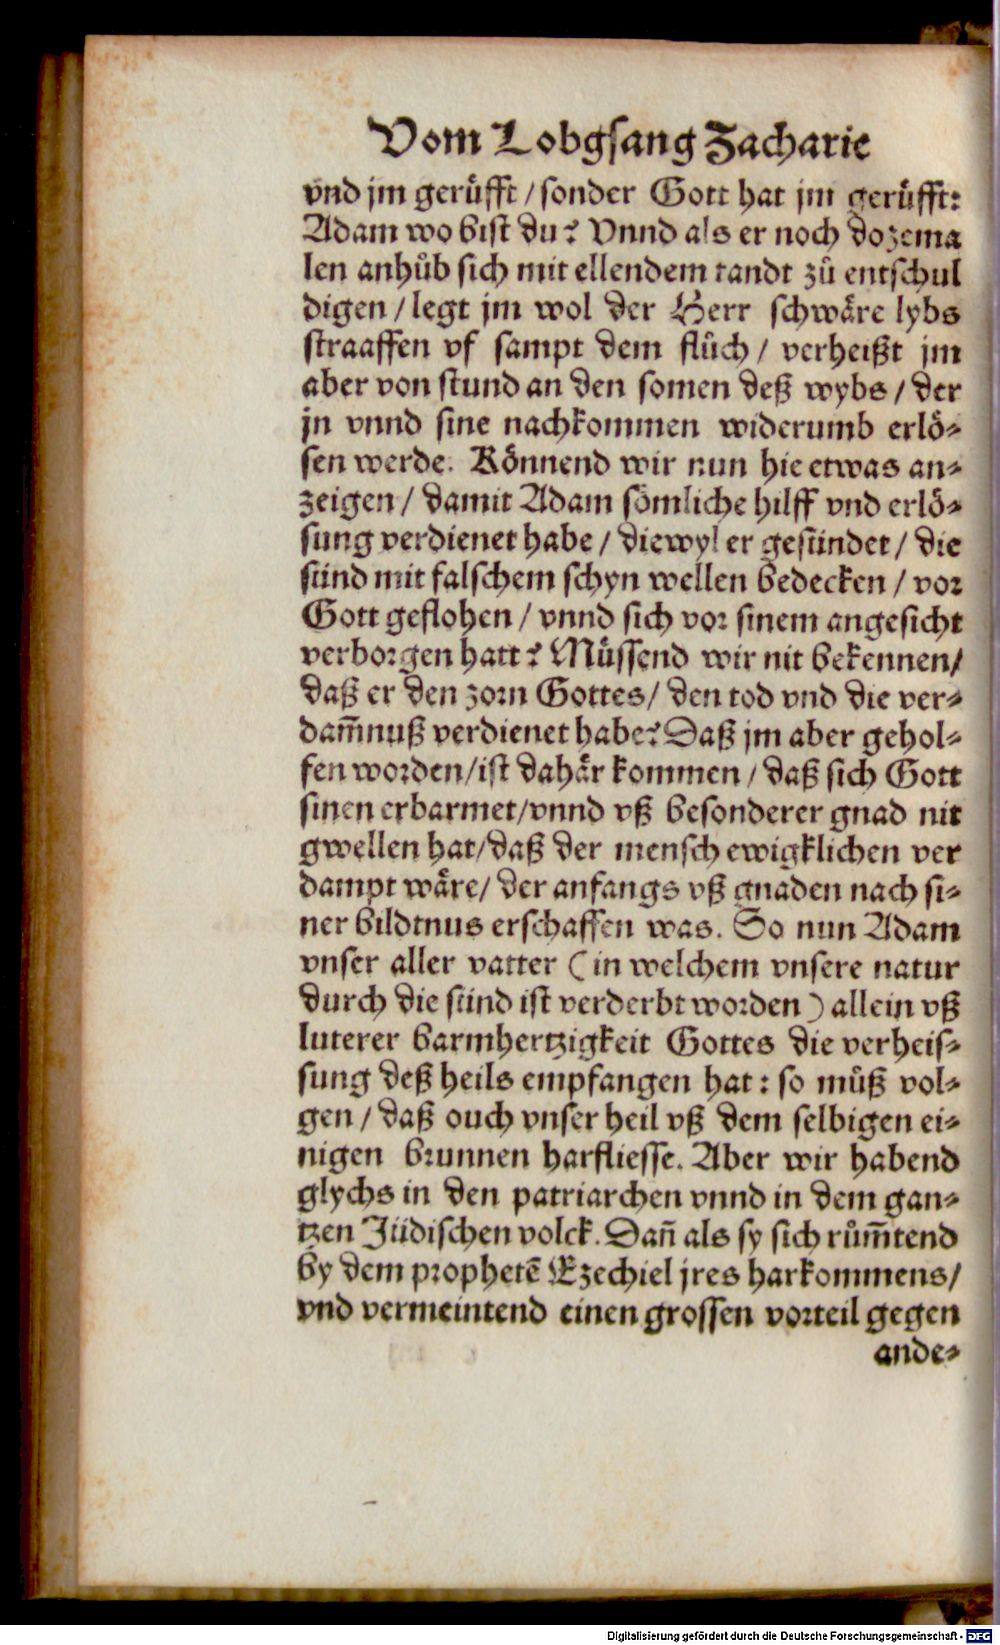 Vom Lobgsang Zacharie
vnd jm gerüfft / sonder Gott hat jm gerüfft:
Adam wo bist du? Vnnd als er noch dozema
len anhůb sich mit ellendem tandt zů entschul
digen / legt jm wol der Herr schwäre lybs
straaffen vf sampt dem flůch / verheißt jm
aber von stund an den somen deß wybs / der
jn vnnd sine nachkommen widerumb erlö⸗
sen werde. Könnend wir nun hie etwas an⸗
zeigen / damit Adam sömliche hilff vnd erlö⸗
sung verdienet habe / diewyl er gesündet / die
sünd mit falschem schyn wellen bedecken / vor
Gott geflohen / vnnd sich vor sinem angesicht
verborgen hatt? Müssend wir nit bekennen/
daß er den zorn Gottes/ den tod vnd die ver⸗
dam̄nuß verdienet habe? Daß jm aber gehol⸗
fen worden/ist dahär kommen / daß sich Gott
sinen erbarmet/vnnd vß besonderer gnad nit
gwellen hat/daß der mensch ewigklichen ver
dampt wäre/ der anfangs vß gnaden nach si⸗
ner bildtnus erschaffen was. So nun Adam
vnser aller vatter (in welchem vnsere natur
durch die sünd ist verderbt worden) allein vß
luterer barmhertzigkeit Gottes die verheis⸗
sung deß heils empfangen hat: so můß vol⸗
gen / daß ouch vnser heil vß dem selbigen ei⸗
nigen brunnen harfliesse. Aber wir habend
glychs in den patriarchen vnnd in dem gan⸗
tzen Jüdischen volck. Dan̄ als sy sich rům̄tend
by dem prophetē Ezechiel jres harkommens/
vnd vermeintend einen grossen vorteil gegen
ande⸗
Digitalisierung gefördert durch die Deutsche Forschungsgemeinschaft - DFG